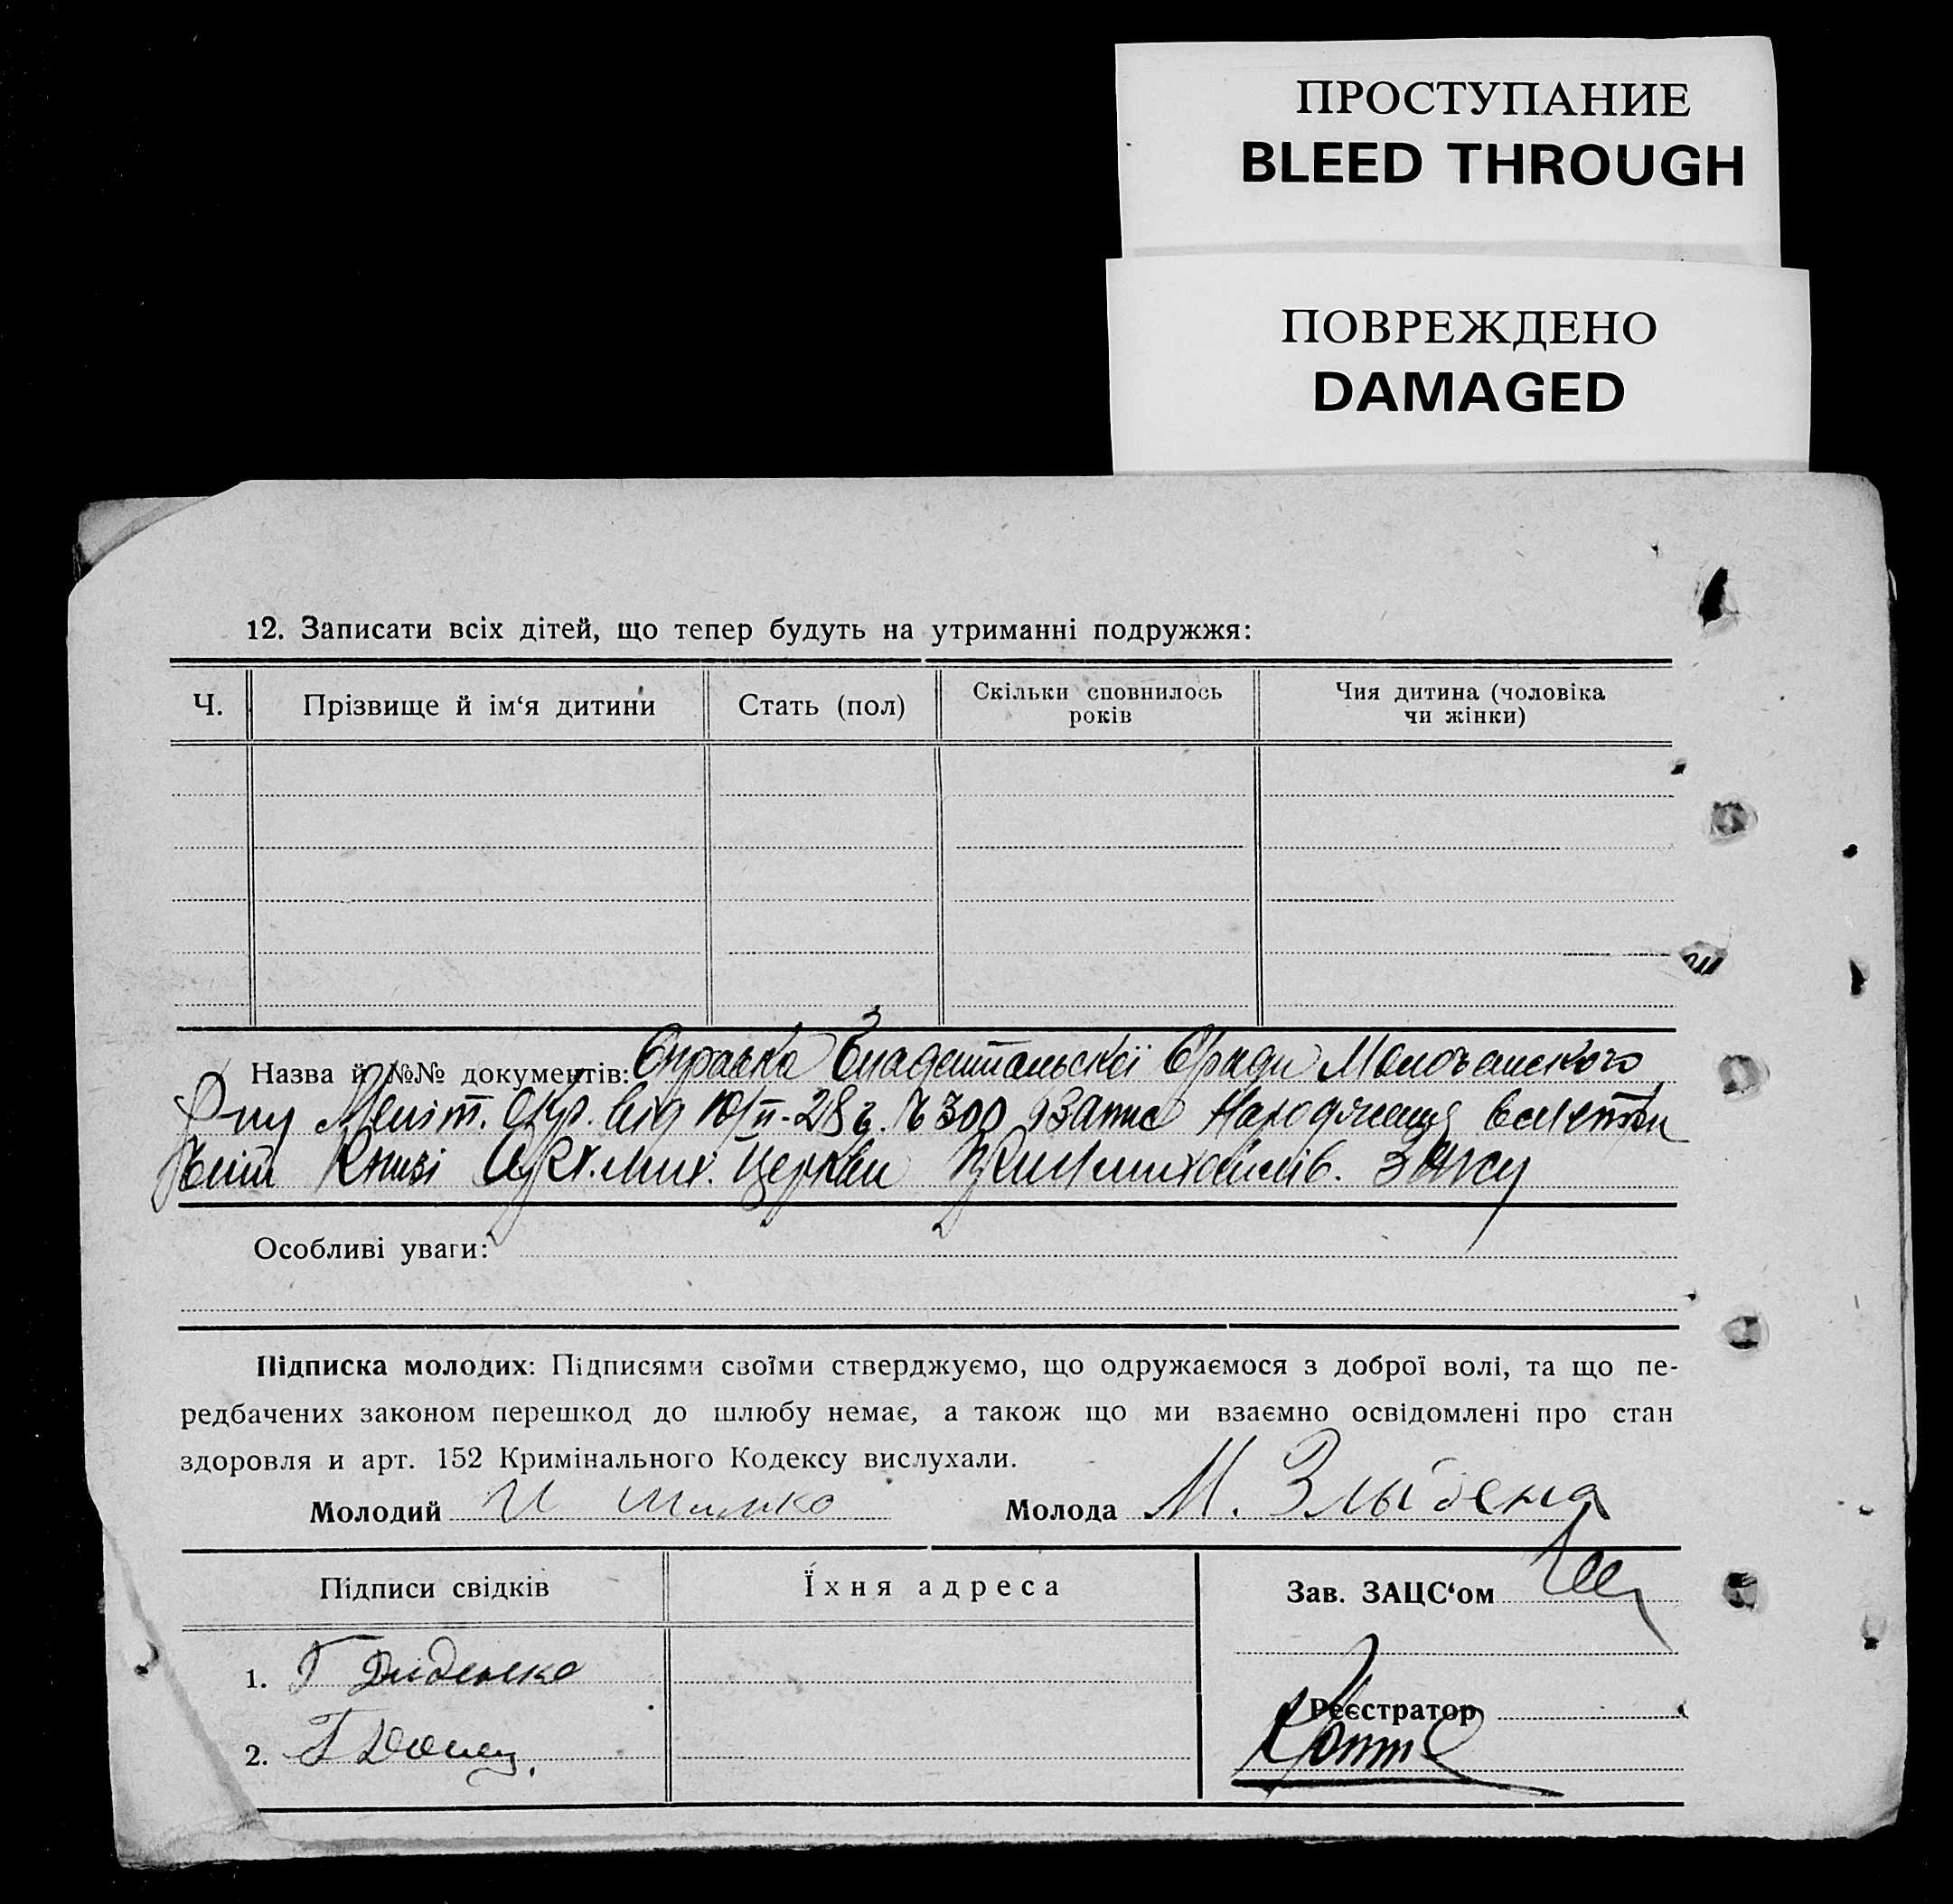 ПРОСТУПАНИЕ
BLEED THROUGH
ПОВРЕЖДЕНО
DAMAGED
12. Записати всіх дітей, що тепер будуть на утриманні подружжя:
Ч.
Прізвище й ім‘я дитини
Стать (пол)
Скільки сповнилось
років
Чия дитина (чоловіка
чи жінки)
Назва й №№ документів: Справка Сradи Молочанского
Меліт. Окр. від 10/II-28 г. № 300
Книзі Церкви
Особливі уваги:
Підписка молодих: Підписями своїми стверджуємо, що одружаємося з доброї волі, та що пе-
редбачених законом перешкод до шлюбу немає, а також що ми взаємно освідомлені про стан
здоровля и арт. 152 Кримінального Кодексу вислухали.
Молодий И Шамко Молода М.
Підписи свідків
Їхня адреса
Зав. ЗАЦС‘ом
1. Г Диденко
2. Г
Реєстратор